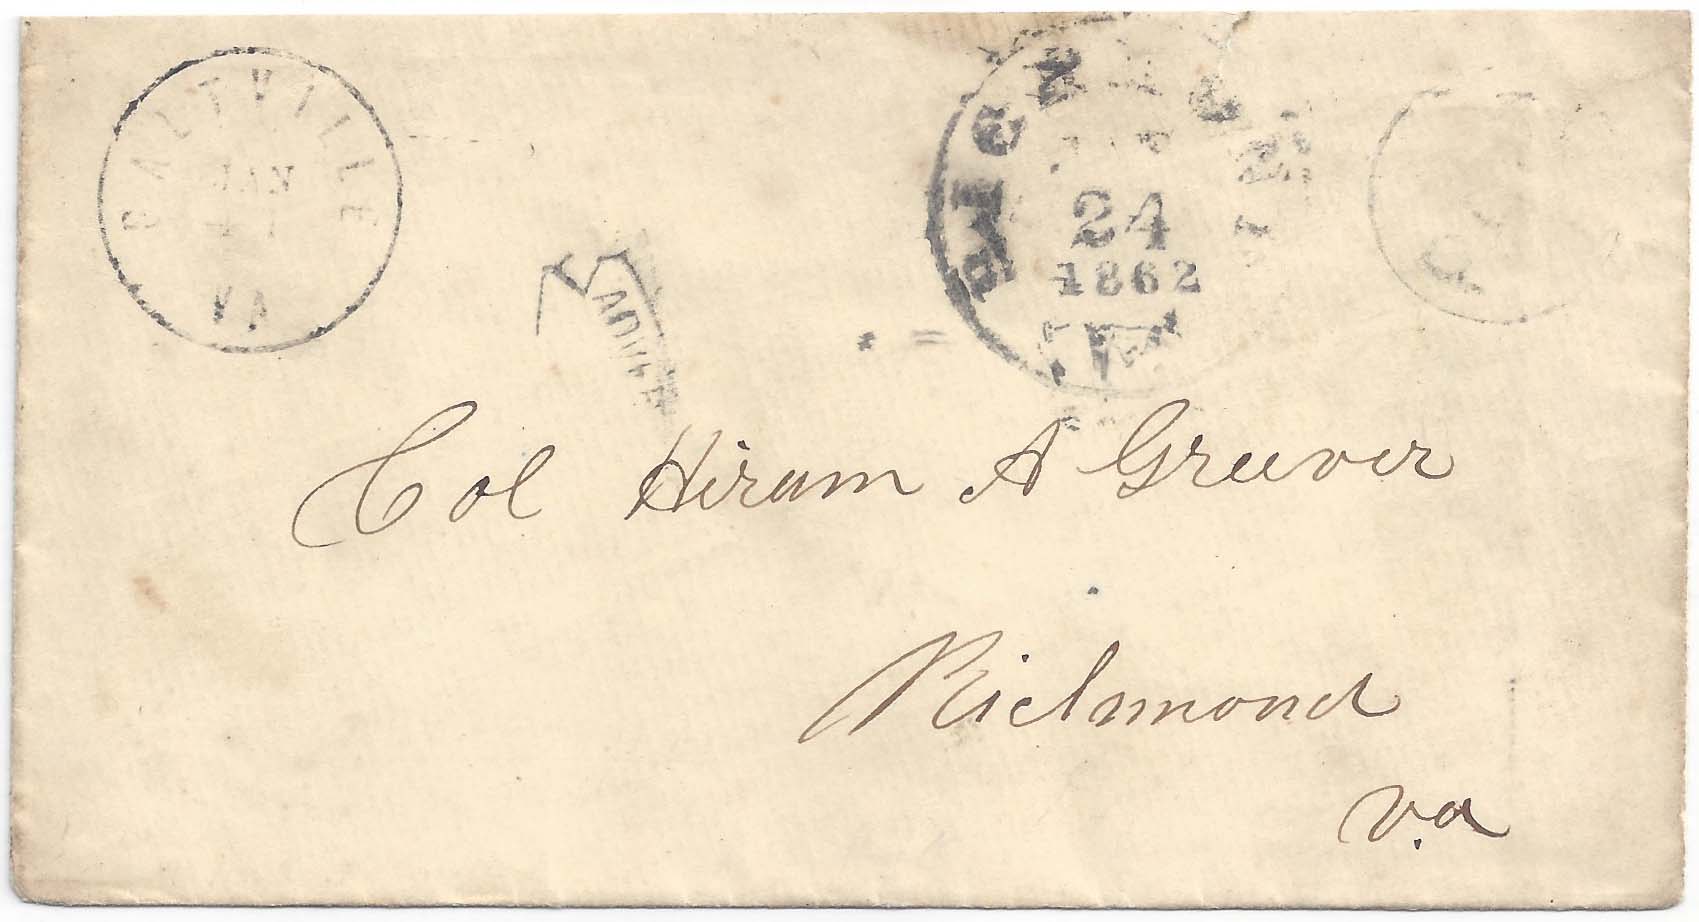 SALTVILLE
JAN
VA
RICHMOND
24
1862
VA.
ADVER
Col Hiram A Greever
Richmond
Va